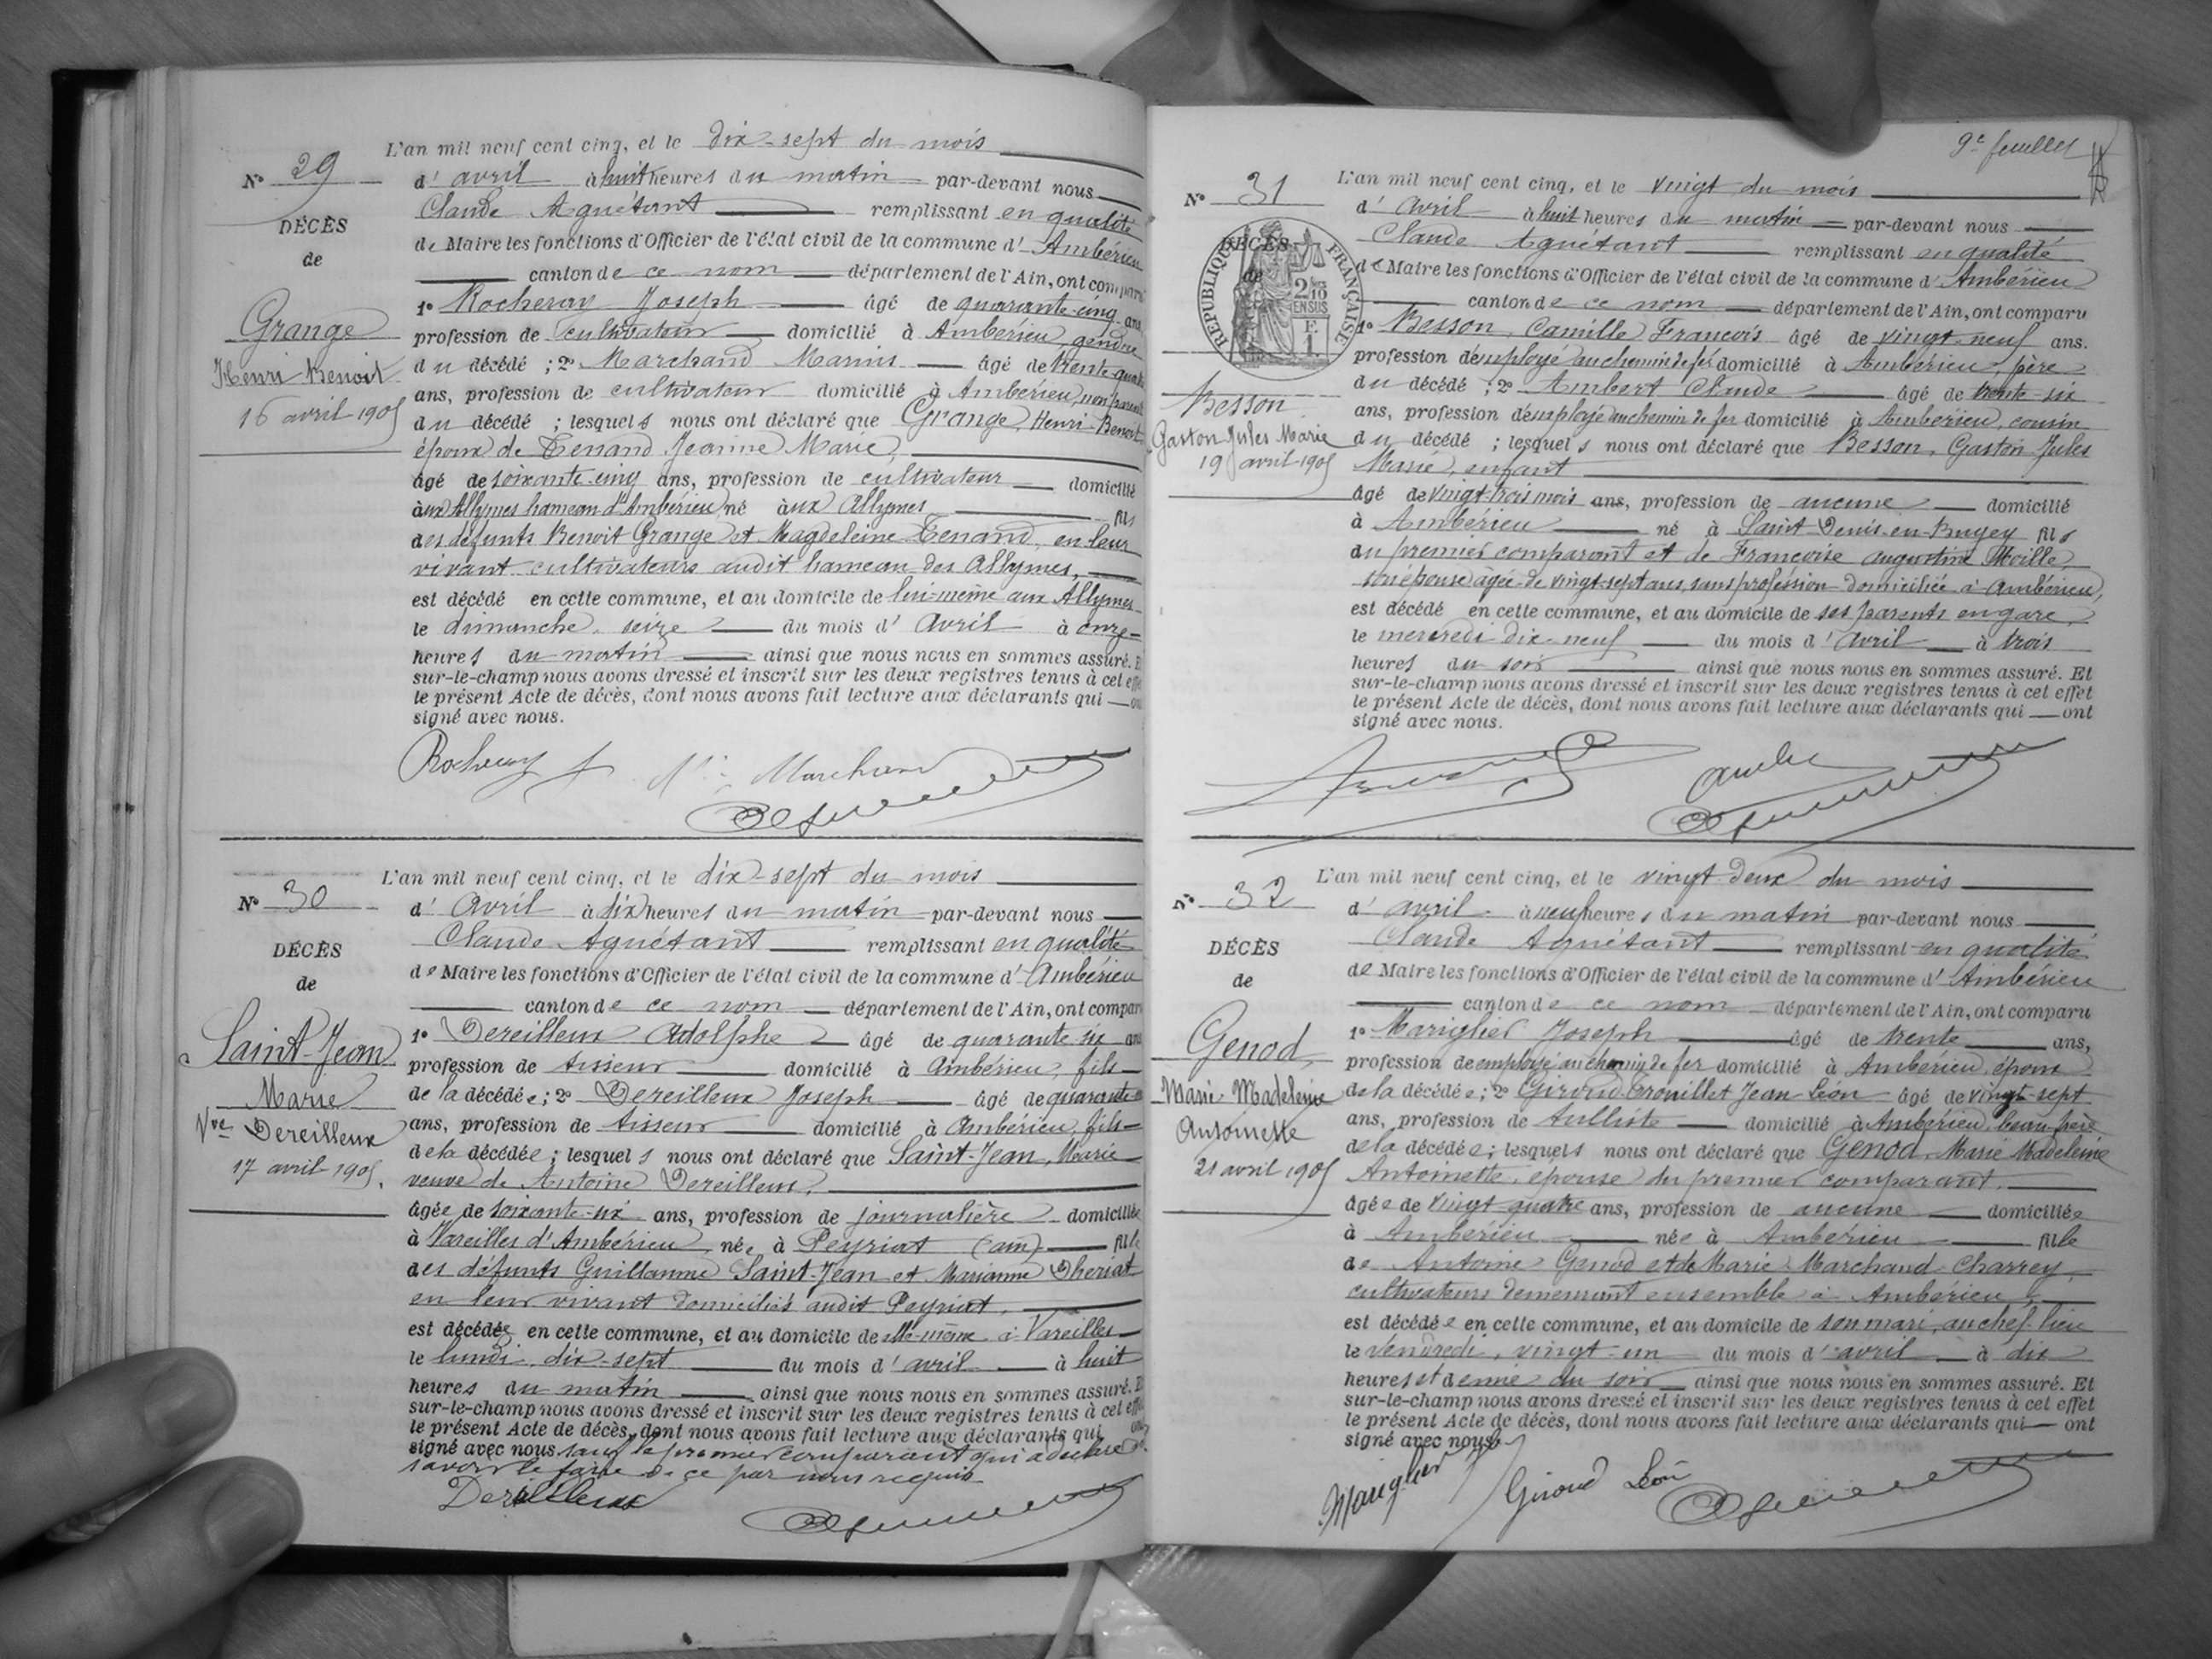 N° 29
DÉCÈS
de
Grange
Henri Benoit
16 avril 1905
L'an mil neuf cent cinq, et le dix-sept du mois
d'avril à huit heures du matin par-devant nous
Claude Aguétant remplissant en qualité
de Maire les fonctions d'Officier de l'état civil de la commune d'Ambérieu
canton de ce nom département de l'Ain, ont comparu
1° Rocheray Joseph âgé de quarante-cinq ans
profession de cultivateur domicilié à Ambérieu, gendre
du décédé ; 2° Marchand Marius âgé de trente-quatre
ans, profession de cultivateur domicilié à Ambérieu, non parent
du décédé ; lesquels nous ont déclaré que Grange, Henri-Benoit
époux de Tenand Jeanne Marie,
âgé de soixante-cinq ans, profession de cultivateur domicilié
aux Allymes hameau d'Ambérieu né aux Allymes fils
des défunts Benoit Grange et Magdeleine Tenand, en leur
vivant cultivateurs audit hameau des Allymes,
est décédé en cette commune, et au domicile de lui-même aux Allymes
le dimanche seize du mois d'Avril à onze
heures du matin ainsi que nous nous en sommes assuré. E
sur-le-champ nous avons dressé et inscrit sur les deux registres tenus à cet effe
le présent Acte de décès, dont nous avons fait lecture aux déclarants qui on
signé avec nous.
Rocheray J
Marchand
N° 30
DÉCÈS
de
Saint-Jean
Marie
Vve Dereilleux
17 avril 1905.
L'an mil neuf cent cinq, et le dix-sept du mois
d'Avril à dix heures du matin par-devant nous
Claude Aguétant remplissant en qualité
de Maire les fonctions d'Officier de l'état civil de la commune d'Ambérieu
canton de ce nom département de l'Ain, ont compar
1° Dereilleux Adolphe âgé de quarante-six ans
profession de tisseur domicilié à Ambérieu, fils
de la décédée ; 2° Dereilleux Joseph âgé de quarante
ans, profession de tisseur domicilié à Ambérieu, fils
de la décédée ; lesquels nous ont déclaré que Saint-Jean, Marie
veuve de Antoine Dereilleux,
âgée de soixante-six ans, profession de journalière domiciliée
à Vareilles d'Ambérieu, née à Peyriat (ain) fille
des défunts Guillaume Saint-Jean et Marianne Dheriat
en leur vivant domiciliés audit Peyriat,
est décédée en cette commune, et au domicile de elle-même à Vareilles
le lundi dix-sept du mois d'avril à huit
heures du matin ainsi que nous nous en sommes assuré. E
sur-le-champ nous avons dressé et inscrit sur les deux registres tenus à cet effe
le présent Acte de décès, dont nous avons fait lecture aux déclarants qui ont
signé avec nous sauf le premier comparant qui a déclaré ne
savoir le faire de ce par nous requis
Dereilleux
9e feuillet
N° 31
RÉPUBLIQUE FRANÇAISE
2/10 EN SUS
DÉCÈS
de
Besson
Gaston Jules Marie
19 avril 1905
L'an mil neuf cent cinq, et le vingt du mois
d'Avril à huit heures du matin par-devant nous
Claude Aguétant remplissant en qualité
de Maire les fonctions d'Officier de l'état civil de la commune d'Ambérieu
canton de ce nom département de l'Ain, ont comparu
1° Besson, Camille François âgé de vingt-neuf ans.
profession d'employé au chemin de fer domicilié à Ambérieu, père
du décédé ; 2° Ambert Claude âgé de trente-six
ans, profession d'employé au chemin de fer domicilié à Ambérieu, cousin
du décédé ; lesquels nous ont déclaré que Besson, Gaston Jules
Marie, enfant
âgé de vingt-trois mois ans, profession de aucune domicilié
à Ambérieu né à Saint-Denis-en-Bugey fils
du premier comparant et de Françoise Augustine Moille,
son épouse âgée de vingt-sept ans, sans profession domiciliée à Ambérieu,
est décédé en cette commune, et au domicile de ses parents en gare,
le mercredi dix-neuf du mois d'avril à trois
heures du soir ainsi que nous nous en sommes assuré. Et
sur-le-champ nous avons dressé et inscrit sur les deux registres tenus à cet effet
le présent Acte de décès, dont nous avons fait lecture aux déclarants qui ont
signé avec nous.
N° 32
DÉCÈS
de
Genod
Marie Madeleine
Antoinette
21 avril 1905
L'an mil neuf cent cinq, et le vingt-deux du mois
d'avril à neuf heures du matin par-devant nous
Claude Aguétant remplissant en qualité
de Maire les fonctions d'Officier de l'état civil de la commune d'Ambérieu
canton de ce nom département de l'Ain, ont comparu
1° Mariglier Joseph âgé de trente ans,
profession de employé au chemin de fer domicilié à Ambérieu, époux
de la décédée ; 2° Giroud Trouillet Jean Léon âgé de vingt-sept
ans, profession de tulliste domicilié à Ambérieu, beau-frère
de la décédée ; lesquels nous ont déclaré que Genod, Marie Madeleine
Antoinette, épouse du premier comparant,
âgée de vingt quatre ans, profession de aucune domiciliée
à Ambérieu née à Ambérieu fille
de Antoine Genod et de Marie Marchand-Charrey,
cultivateurs demeurant ensemble à Ambérieu
est décédée en cette commune, et au domicile de son mari, au chef-lieu
le Vendredi, vingt-un du mois d'avril à dix
heures et demie du soir ainsi que nous nous en sommes assuré. Et
sur-le-champ nous avons dressé et inscrit sur les deux registres tenus à cet effet
le présent Acte de décès, dont nous avons fait lecture aux déclarants qui ont
signé avec nous.
Mariglier
Giroud Léon